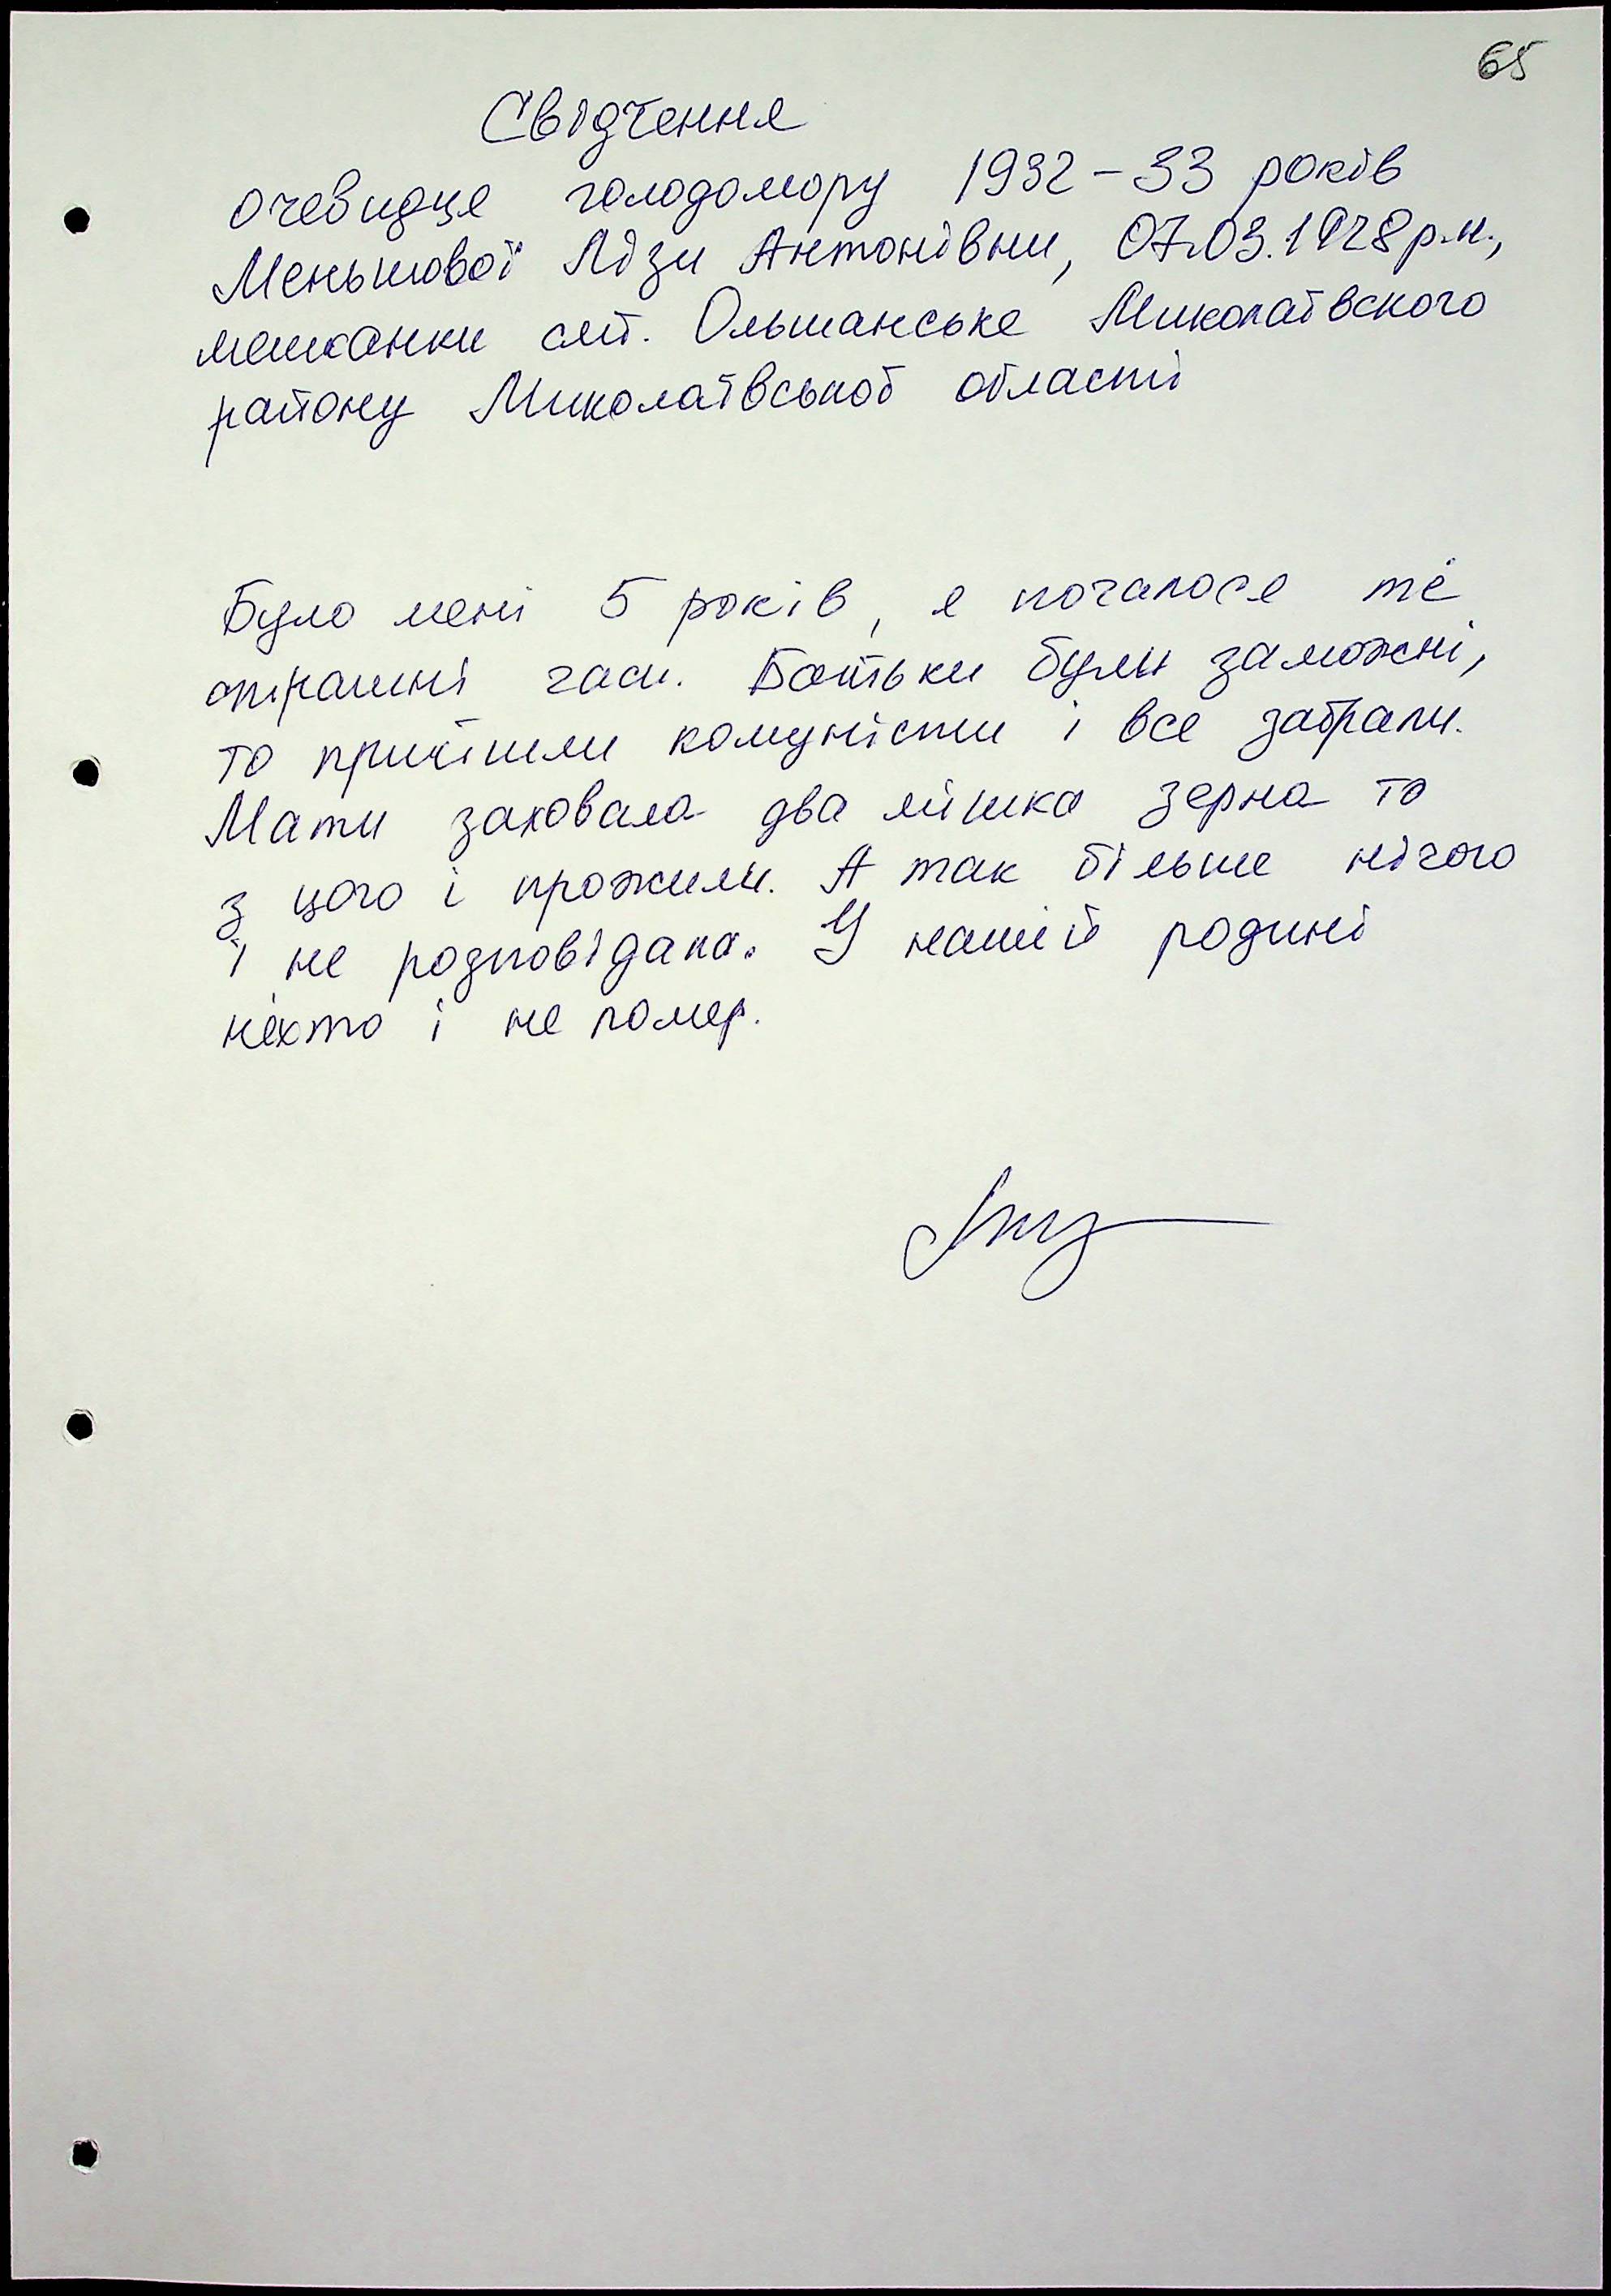 65
Свідчення
очевидця голодомору 1932-33 років
Меньшової Лізи Антонівни, 07.03.1928 р.н.,
мешканки смт. Ольшанське Миколаївского
району Миколаївської області
Було мені 5 років, я почалося ті
страшні часи. Батьки були заможні,
то прийшли комуністи і все забрали.
Мати заховала два мішка зерна то
з цого і прожили. А так більше нічого
і не розповідала. У нашій родині
ніхто і не помер.